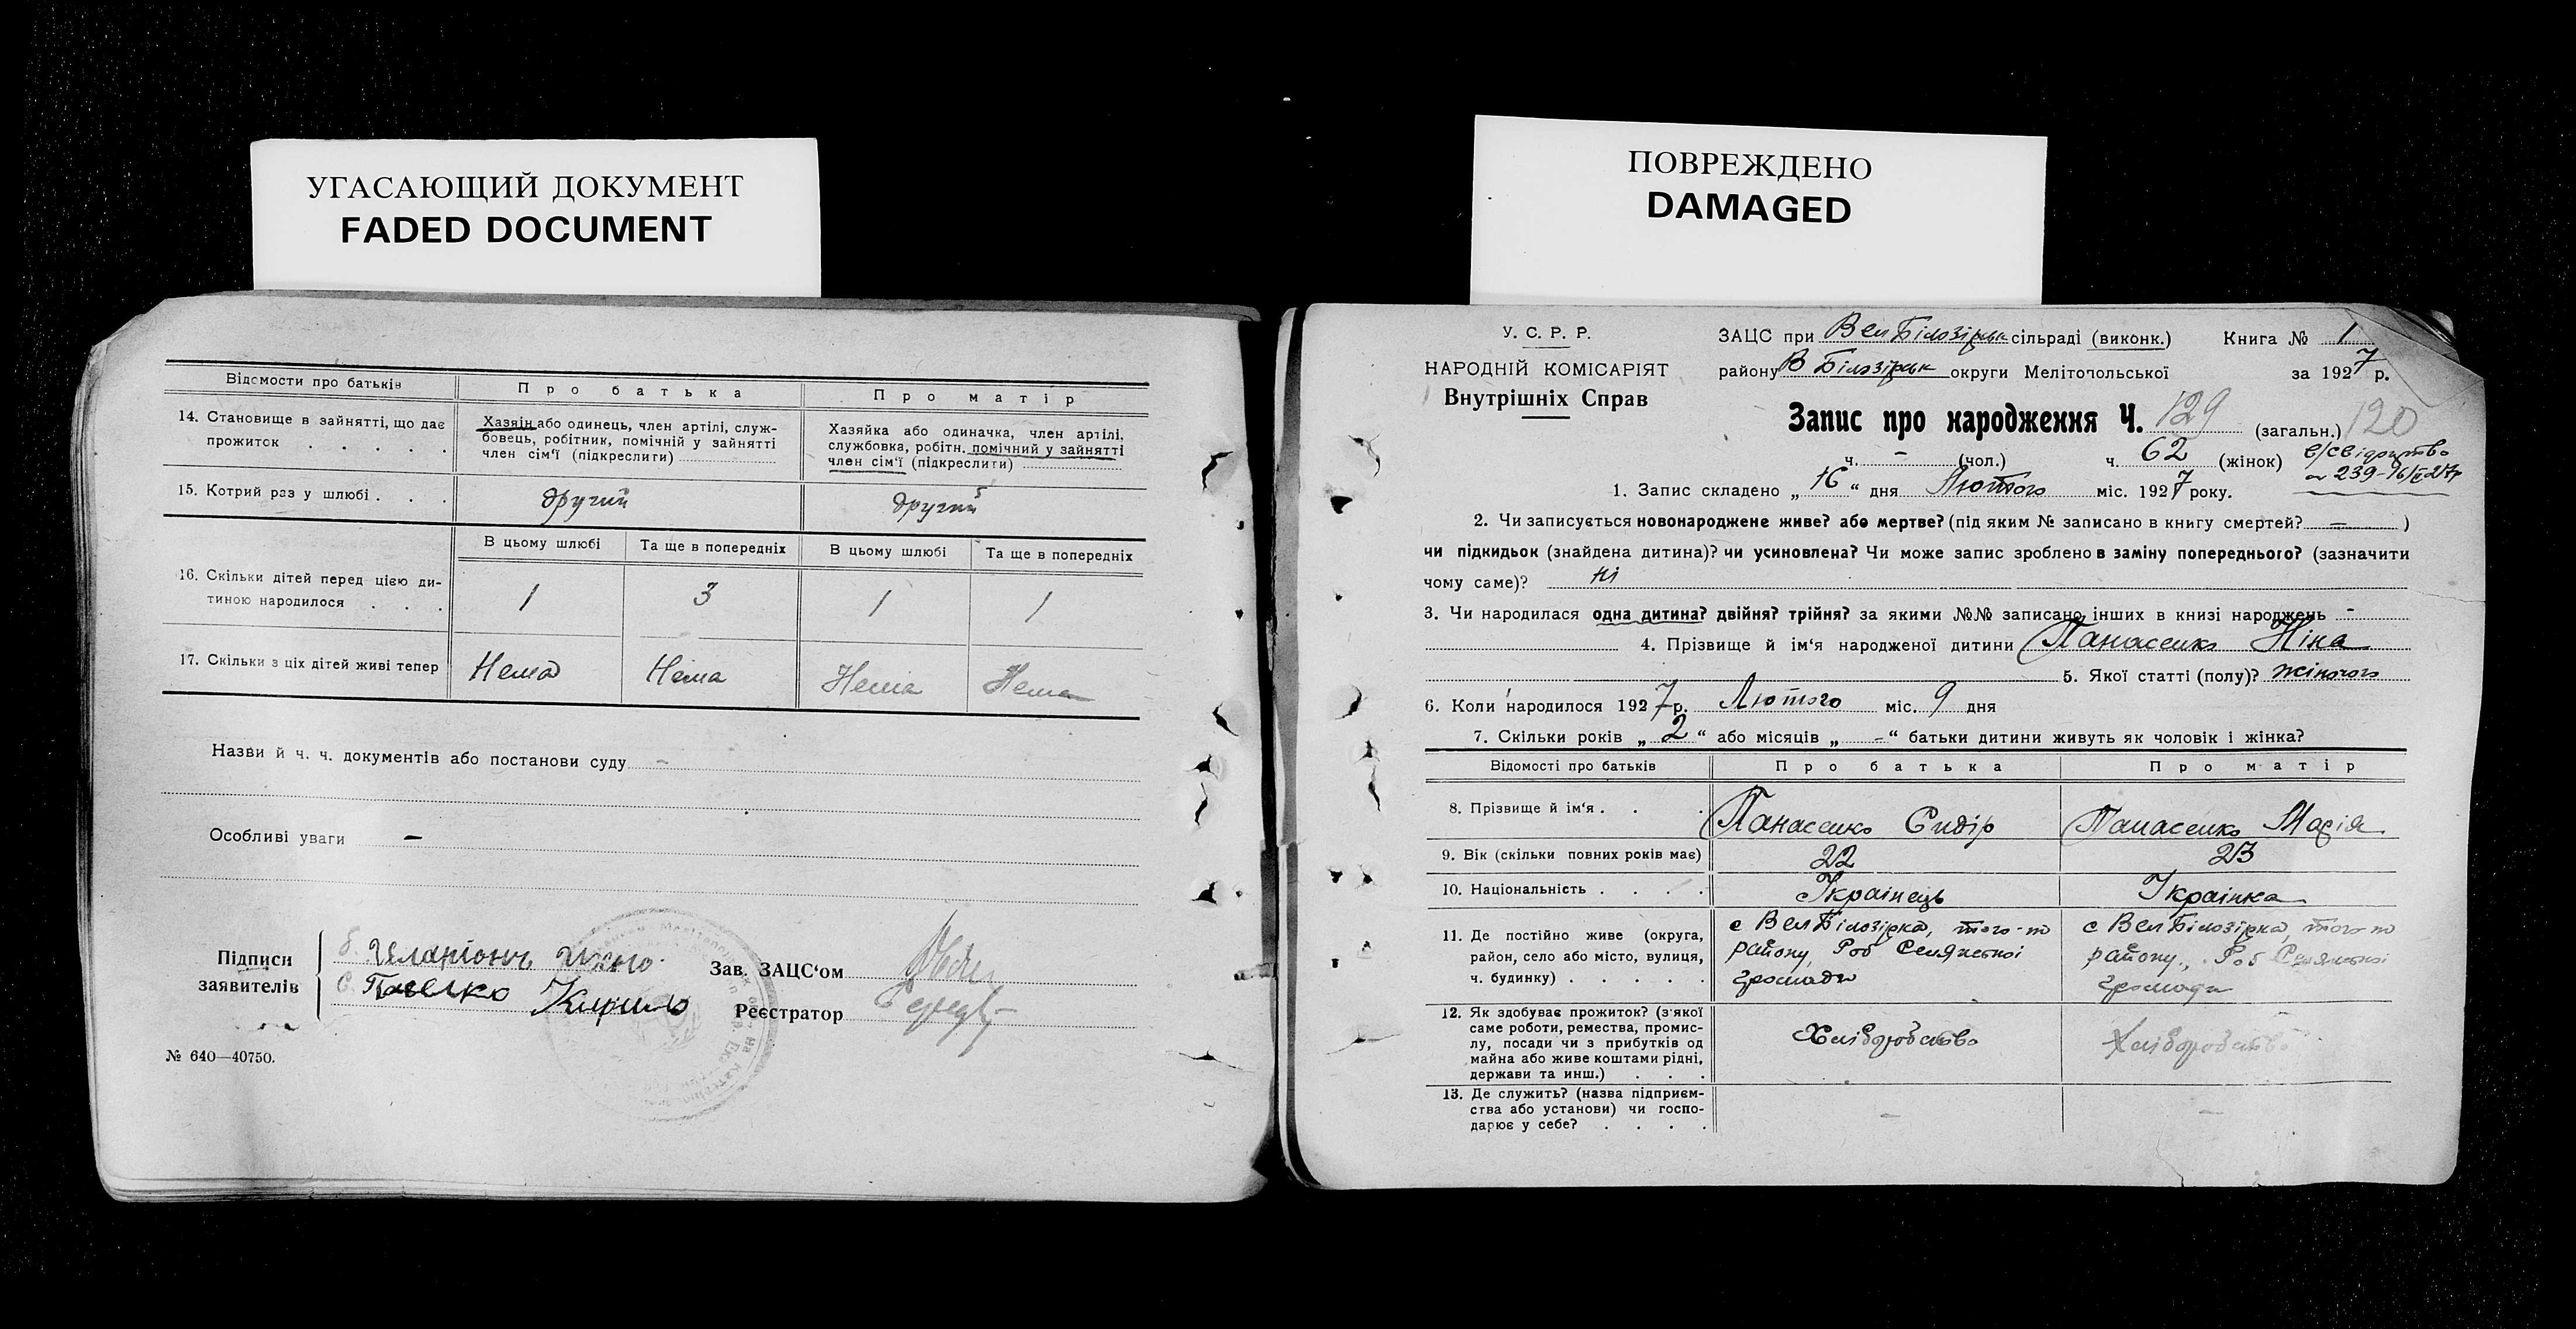 УГАСАЮЩИЙ ДОКУМЕНТ
FADED DOCUMENT
Відомости про батьків Про батька Про матір
14. Становище в зайнятті, що дає
прожиток . . . .
Хазяін або одинець, член артілі, служ-
бовець, робітник, помічній у зайнятті
член сім'ї (підкреслити)
Хазяйка або одиначка, член артілі,
службовка, робітн. помічний у зайнятті
член сім'ї (підкреслити)
15. Котрий раз у шлюбі . . . другий другий
В цьому шлюбі Та ще в попередніх В цьому шлюбі Та ще в попередніх
16. Скільки дітей перед цією ди-
тиною народилося . . . 1 3 1 1
17. Скільки з ціх дітей живі тепер Нема Нема Нема Нема
Назви й ч. ч. документів або постанови суду –
Особливі уваги –
Підписи
заявителів
Кирило
Зав. ЗАЦС'ом
Реєстратор
№ 640—40750.
ПОВРЕЖДЕНО
DAMAGED
У. С. Р. Р.
НАРОДНІЙ КОМІСАРІЯТ
Внутрішніх Справ
ЗАЦС при Вел Білозірськ сільраді (виконк.) Книга № 1
району В Білозірськ округи Мелітопольської за 1927 р.
Запис про народження Ч. 129 (загальн.) 120
ч. – (чол.) ч. 62 (жінок) в/свідоцтво
1. Запис складено „ 16 “ дня Лютого міс. 1927 року.
2. Чи записується новонароджене живе? або мертве? (під яким № записано в книгу смертей? – )
чи підкидьок (знайдена дитина)? чи усиновлена? Чи може запис зроблено в заміну попереднього? (зазначити
чому саме)? ні
3. Чи народилася одна дитина? двійня? трійня? за якими №№ записано інших в книзі народжень –
4. Прізвище й ім'я народженої дитини Панасенко Ніна
5. Якої статті (полу)? жіночого
6. Коли народилося 1927 р. Лютого міс. 9 дня
7. Скільки років „ 2 “ або місяців „ – “ батьки дитини живуть як чоловік і жінка?
Відомості про батьків Про батька Про матір
8. Прізвище й ім'я . . . Панасенко Сидір Панасенко Марія
9. Вік (скільки повних років має) 22 23
10. Національність . . . . Українець Українка
11. Де постійно живе (округа,
район, село або місто, вулиця,
ч. будинку) . . . . .
с ВелБілозірка, того-ж
району Роб Селянської
громади
с ВелБілозірка, того-ж
району, Роб Селянської
громади
12. Як здобуває прожиток? (з'якої
саме роботи, ремества, промис-
лу, посади чи з прибутків од
майна або живе коштами рідні,
держави та инш.) . . .
Хліборобство Хліборобство
13. Де служить? (назва підприєм-
ства або установи) чи госпо-
дарює у себе? . . . .
– –